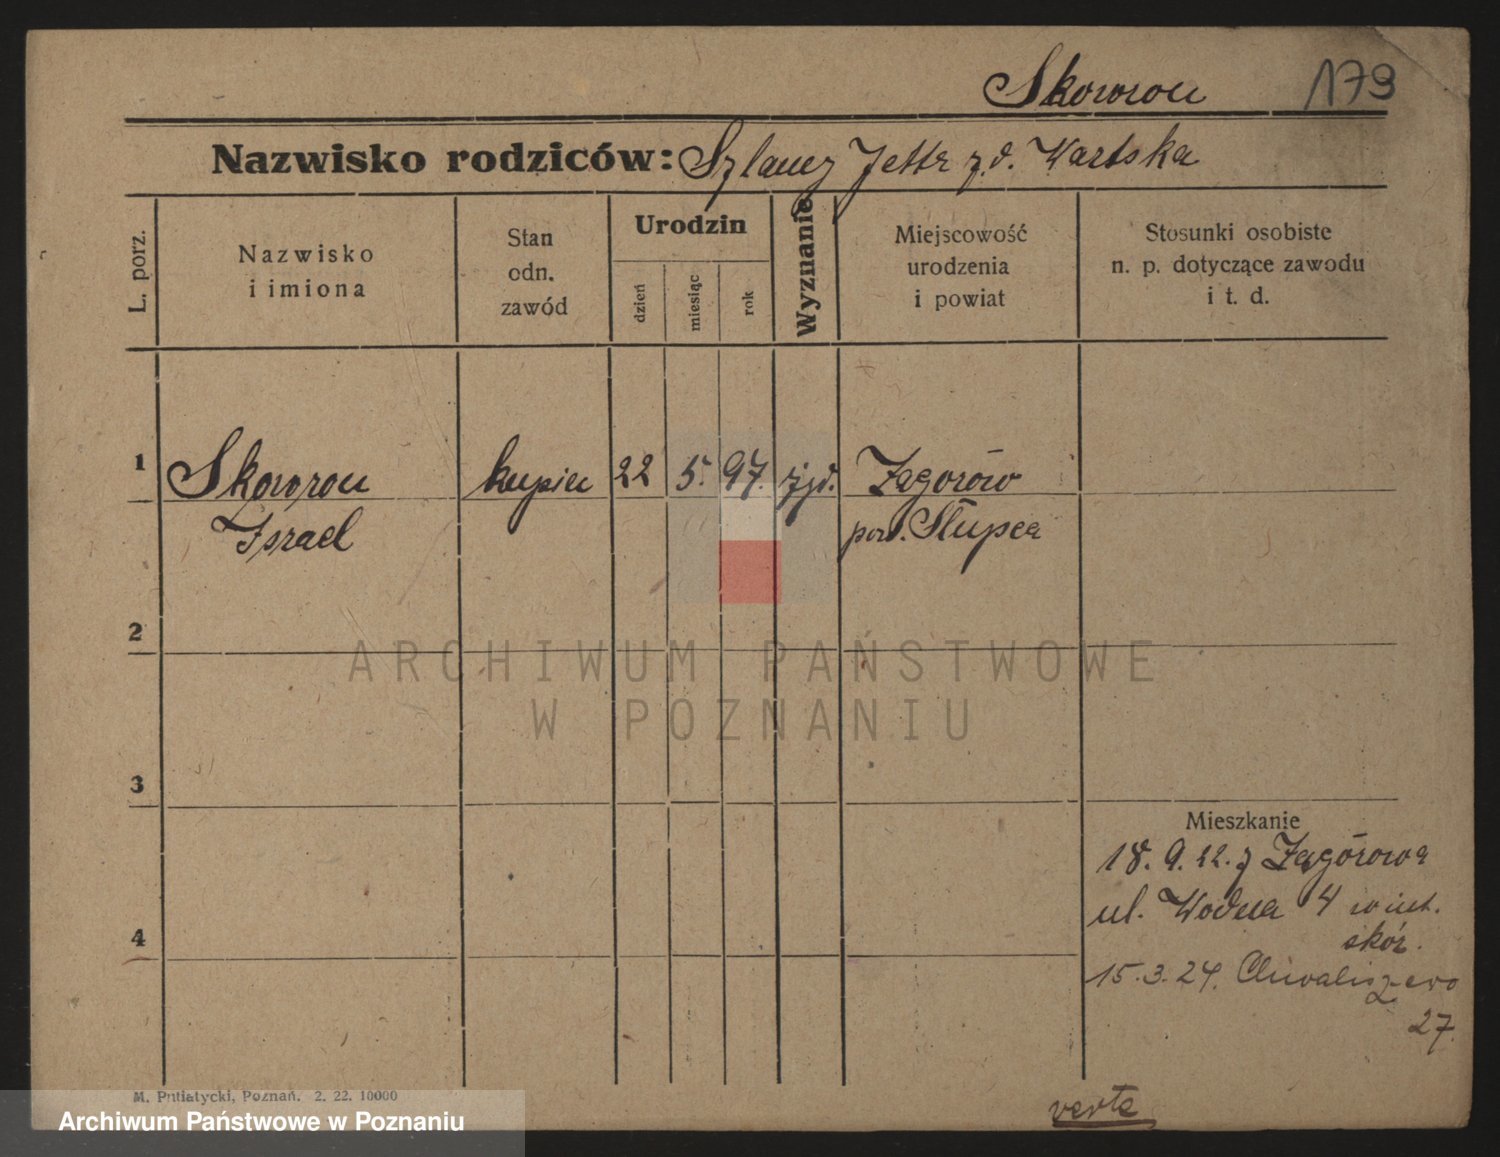 Skowron 179
Nazwisko rodziców: Szlamy Jetta z.d. Wartska
L. porz.
Nazwisko
i imiona
Stan
odn.
zawód
Urodzin
dzień
miesiąc
rok
Wyznanie
Miejscowość
urodzenia
i powiat
Stosunki osobiste
n. p. dotyczące zawodu
i t. d.
1 Skowron kupiec 22 5. 97. żyd. Zagorów
Israel pow. Słupca
2
3
Mieszkanie
18. 9. 22. z Zagórowa
ul. Wodna 4
4
skór.
15. 3. 24. Chwaliszewo
27.
verte
M. Putiatycki, Poznań. 2. 22. 10000
ARCHIWUM PAŃSTWOWE
W POZNANIU
Archiwum Państwowe w Poznaniu